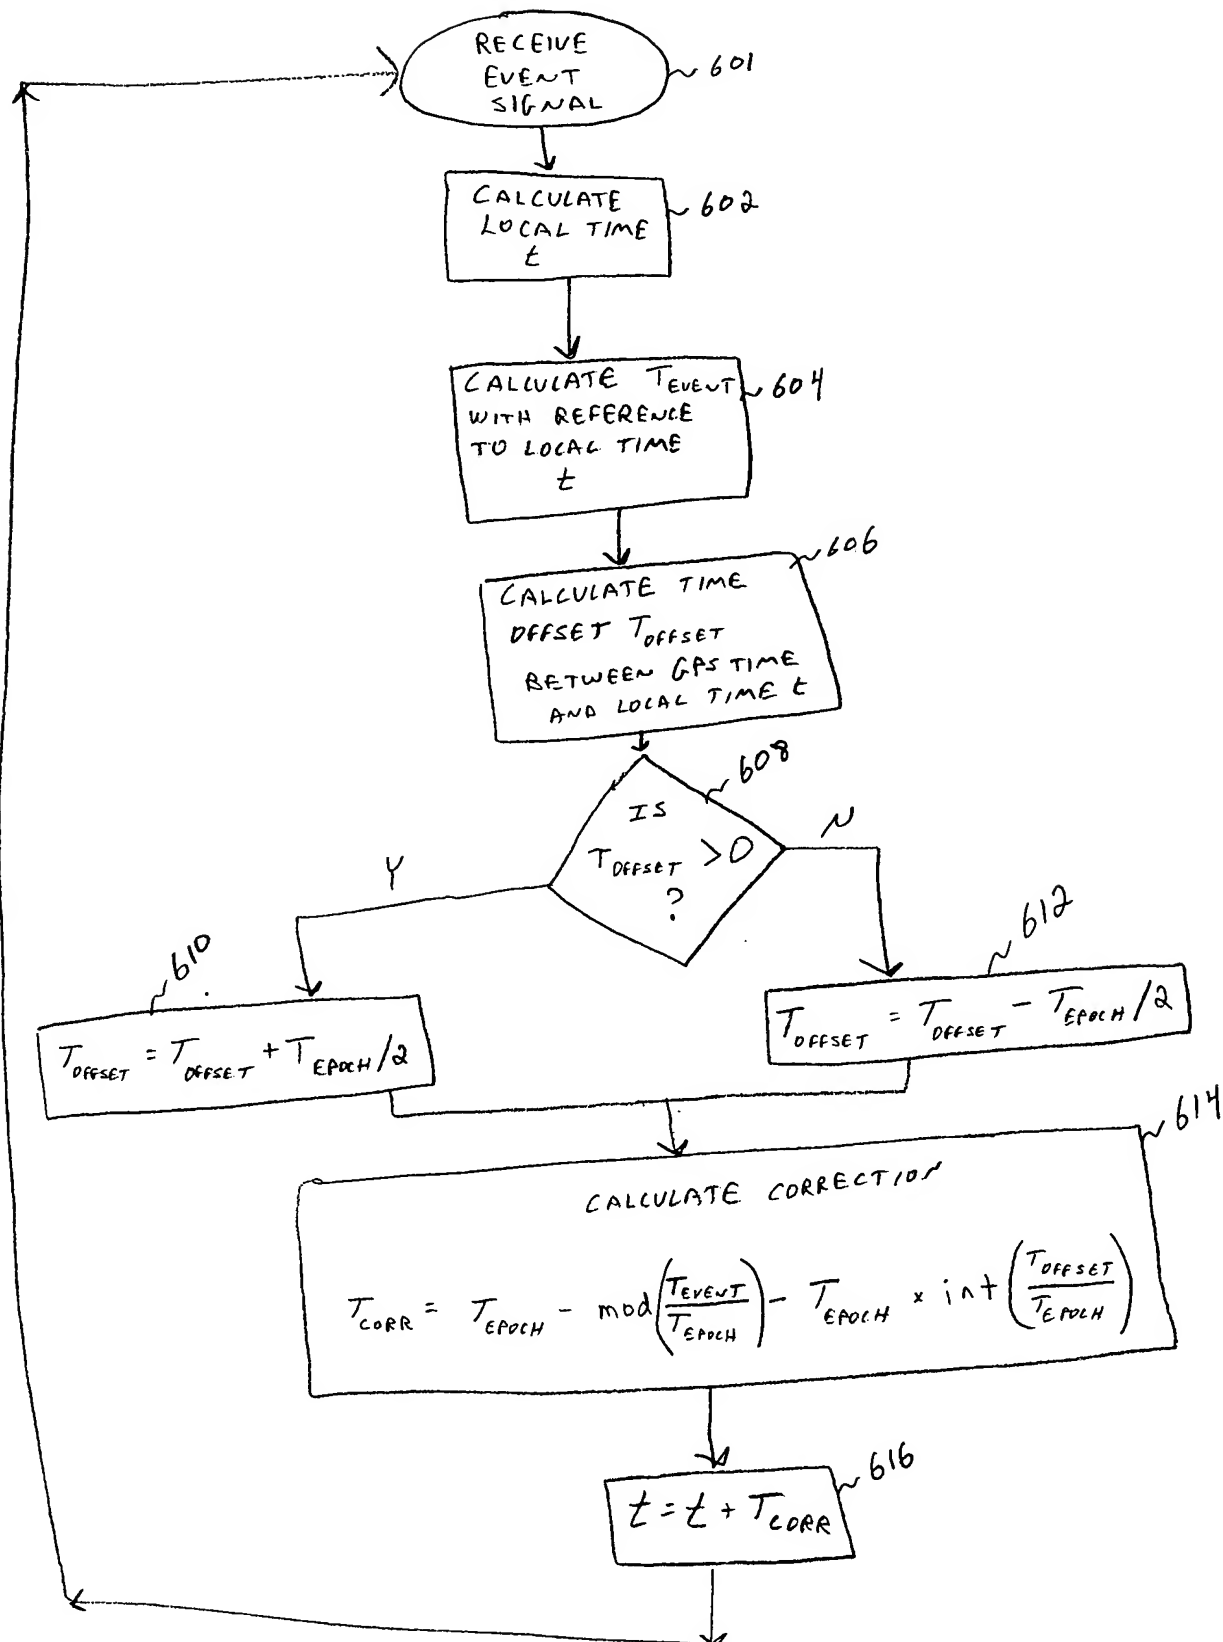 RECEIVE
EVENT
SIGNAL
601
CALCULATE
LOCAL TIME
t
602
CALCULATE T_EVENT
WITH REFERENCE
TO LOCAL TIME
t
604
CALCULATE TIME
OFFSET T_OFFSET
BETWEEN GPS TIME
AND LOCAL TIME t
606
IS
T_OFFSET > 0
?
608
Y
N
610
T_OFFSET = T_OFFSET + T_EPOCH / 2
612
T_OFFSET = T_OFFSET - T_EPOCH / 2
614
CALCULATE CORRECTION
T_CORR = T_EPOCH - mod(T_EVENT / T_EPOCH) - T_EPOCH × int(T_OFFSET / T_EPOCH)
616
t = t + T_CORR